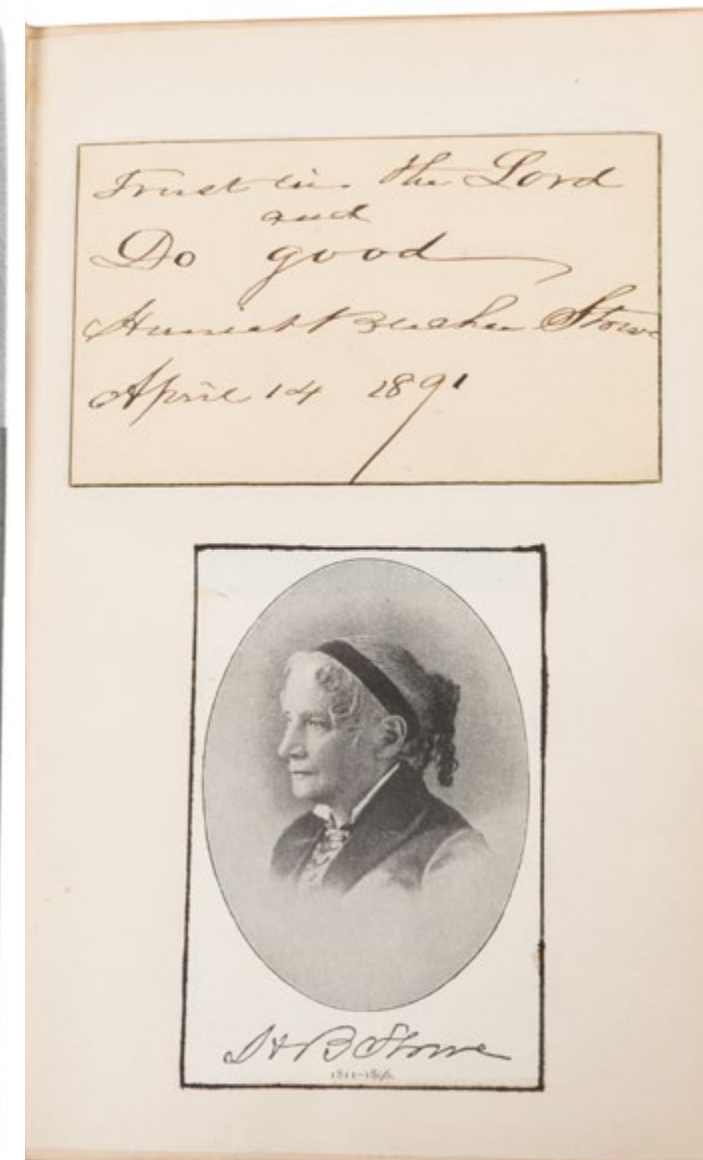 Trust in the Lord
and
Do good
Harriet Beecher Stowe
April 14 1891
H B Stowe
1811-1896.